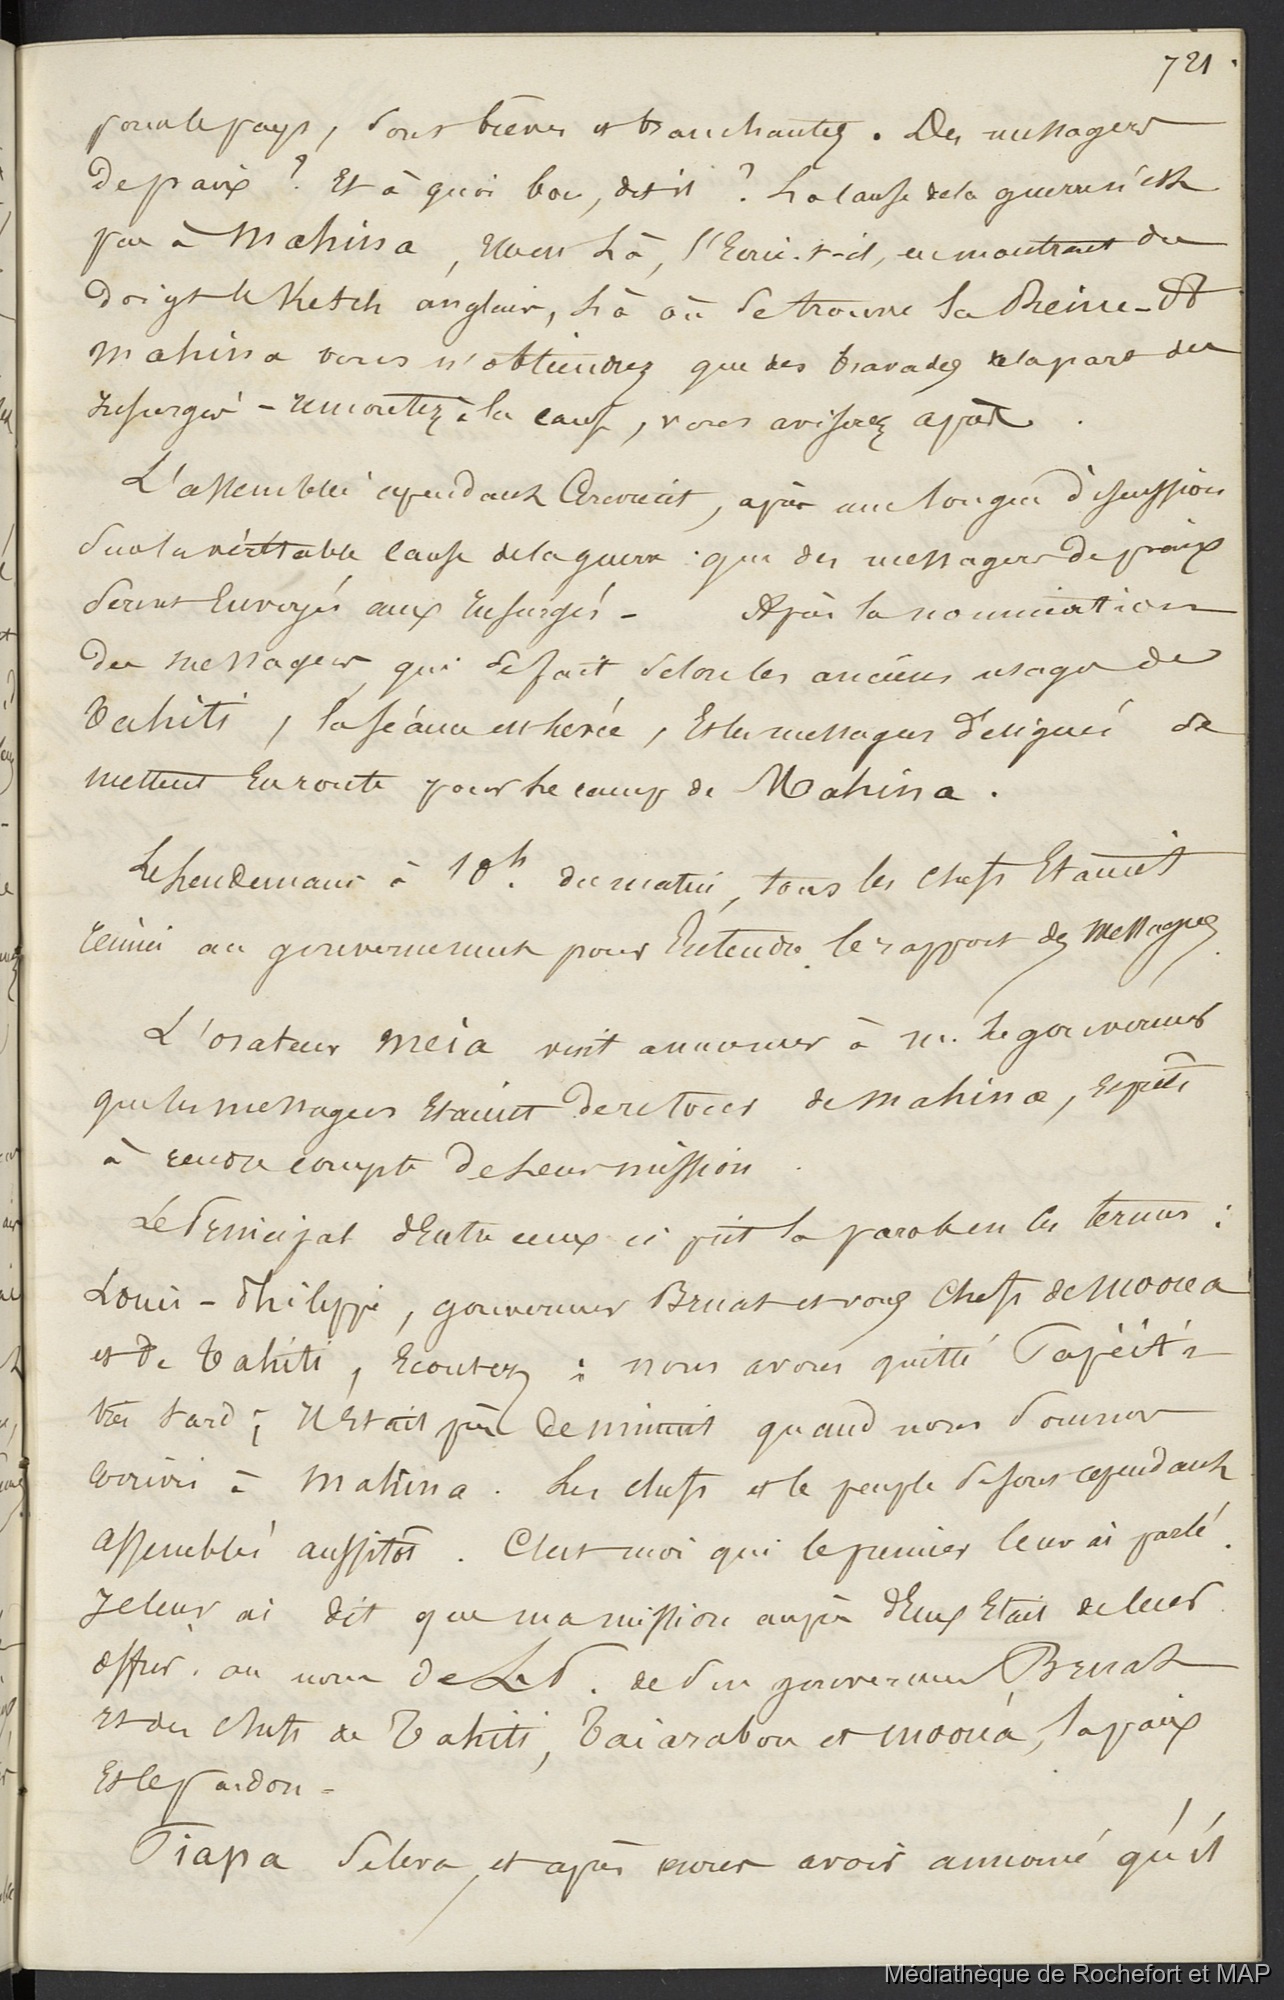 721
pour le pays, sont brèves et tranchantes. Des messagers
de paix ? Et à quoi bon, dit il ? La cause de la guerre n'est
pas à Mahina, elle est Là, s'écrie-t-il, en montrant du
doigt le Ketch anglais, Là où se trouve la Reine - A
Mahina vous n'obtiendrez que des bravades de la part des
insurgés - remontez à la cause, vous aviserez après.
L'assemblée cependant convient, après une longue discussion
sur la véritable cause de la guerre : que des messagers de paix
seront Envoyés aux Insurgés - Après la nomination
des messagers qui se fait selon les anciens usages de
Tahiti, la séance est levée, Et les messagers désignés se
mettent En route pour Le camp de Mahina.
Le Lendemain à 10h. du matin, tous les chefs Etaient
réunis au gouvernement pour Entendre le rapport des messagers.
L'orateur Meia vint annoncer à M. Le gouverneur
que les messagers Etaient de retour de Mahina, Et prêts
à rendre compte de Leur mission.
Le Principal d'Entre ceux ci prit la parole en ces termes :
Louis-Philippe, gouverneur Bruat et vous chefs de Moorea
et de Tahiti, Ecoutez : nous avons quitté Papéiti
très tard ; Il Etait près de minuit quand nous sommes
arrivés à Mahina. Les chefs et le peuple se sont cependant
assemblés aussitôt. C'est moi qui le premier leur ai parlé.
Je leur ai dit que ma mission auprès d'Eux Etait de leur
offrir au nom de L. P. de son gouverneur Bruat
Et des chefs de Tahiti, Taiarabou et Mooréa, la paix
Et le pardon -
Tiapa se leva, et après avoir annoncé qu'il
Médiathèque de Rochefort et MAP